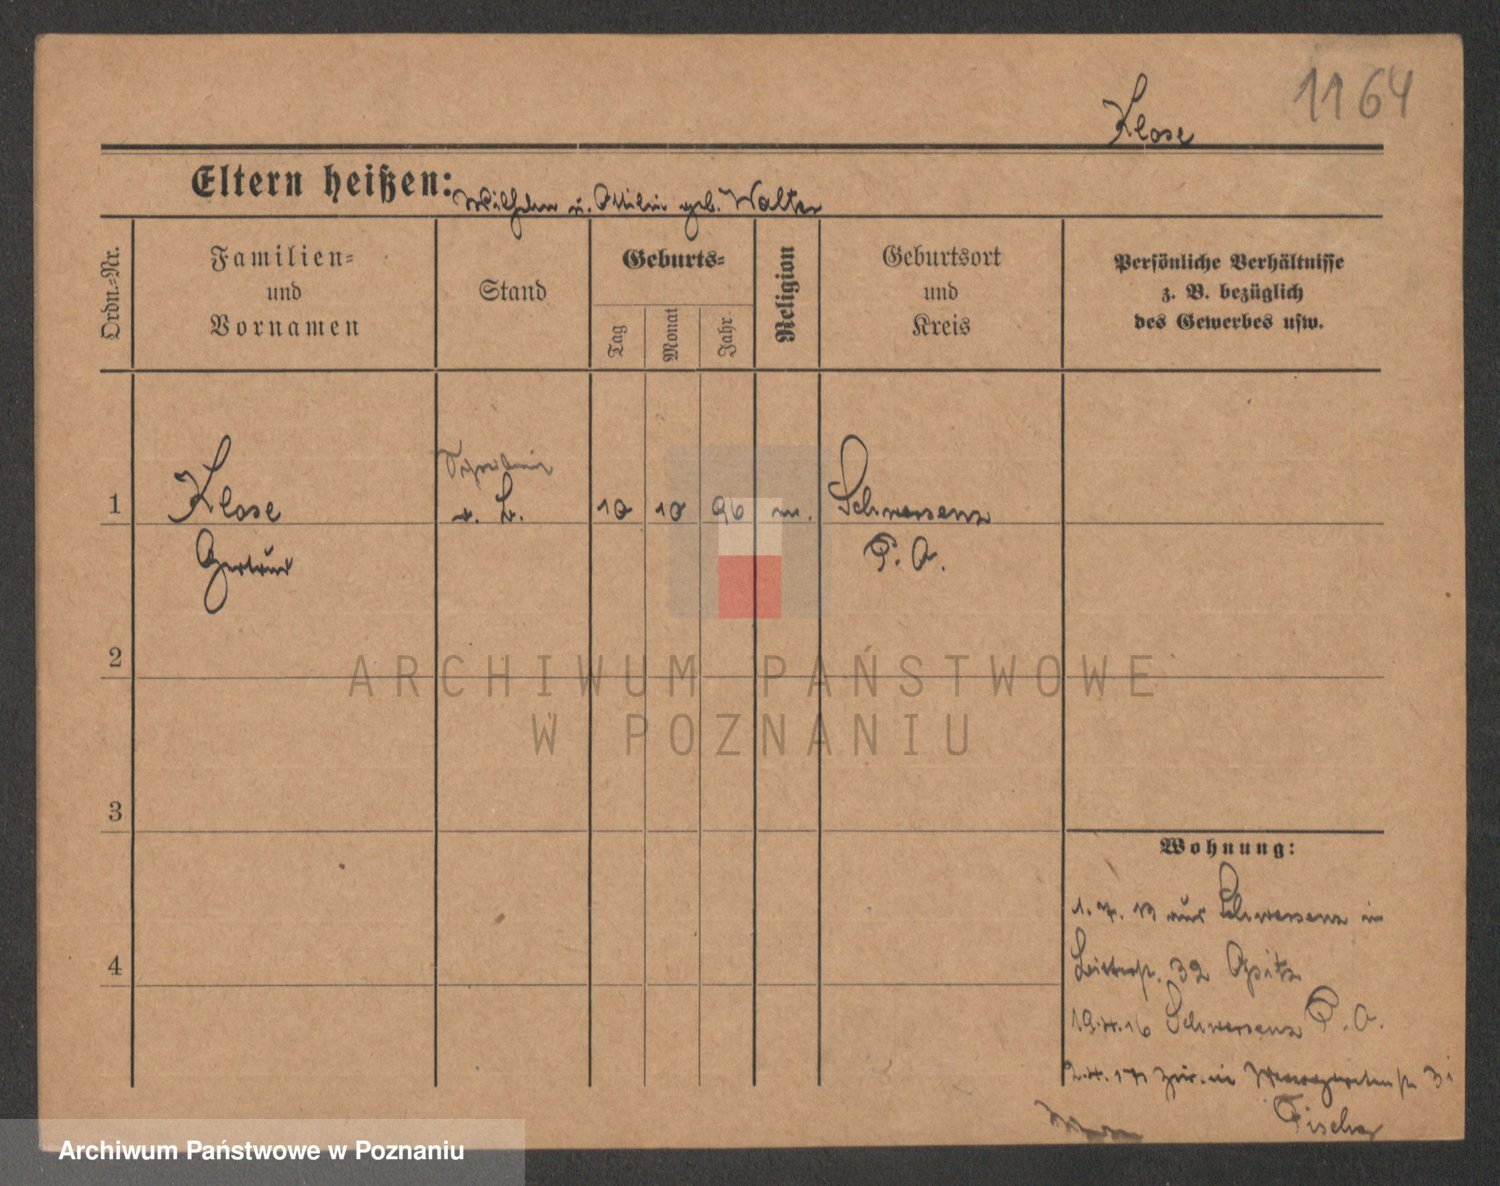 1164
Klose
Eltern heißen: Wilhelm u. Ottilie geb. Walter
Ordn.-Nr.
Familien-
und
Vornamen
Stand
Geburts-
Tag
Monat
Jahr
Religion
Geburtsort
und
Kreis
Persönliche Verhältnisse
z. B. bezüglich
des Gewerbes usw.
1
Klose
Gertrud
o. B.
10
10
96
Schwersenz
P. O.
2
ARCHIWUM PAŃSTWOWE
W POZNANIU
3
4
Wohnung:
1. 7. 13 aus Schwersenz in
32 Opitz
19.4.16 Schwersenz P. O.
2.4.17 zur. in
Fischer
Archiwum Państwowe w Poznaniu